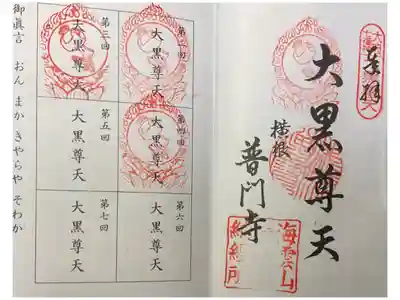 奉拝
大黒尊天
横根
普門寺
海雲山
第二回
大黒尊天
第三回
大黒尊天
第四回
大黒尊天
第五回
大黒尊天
第六回
大黒尊天
第七回
大黒尊天
御眞言 おん まか きやらや そわか